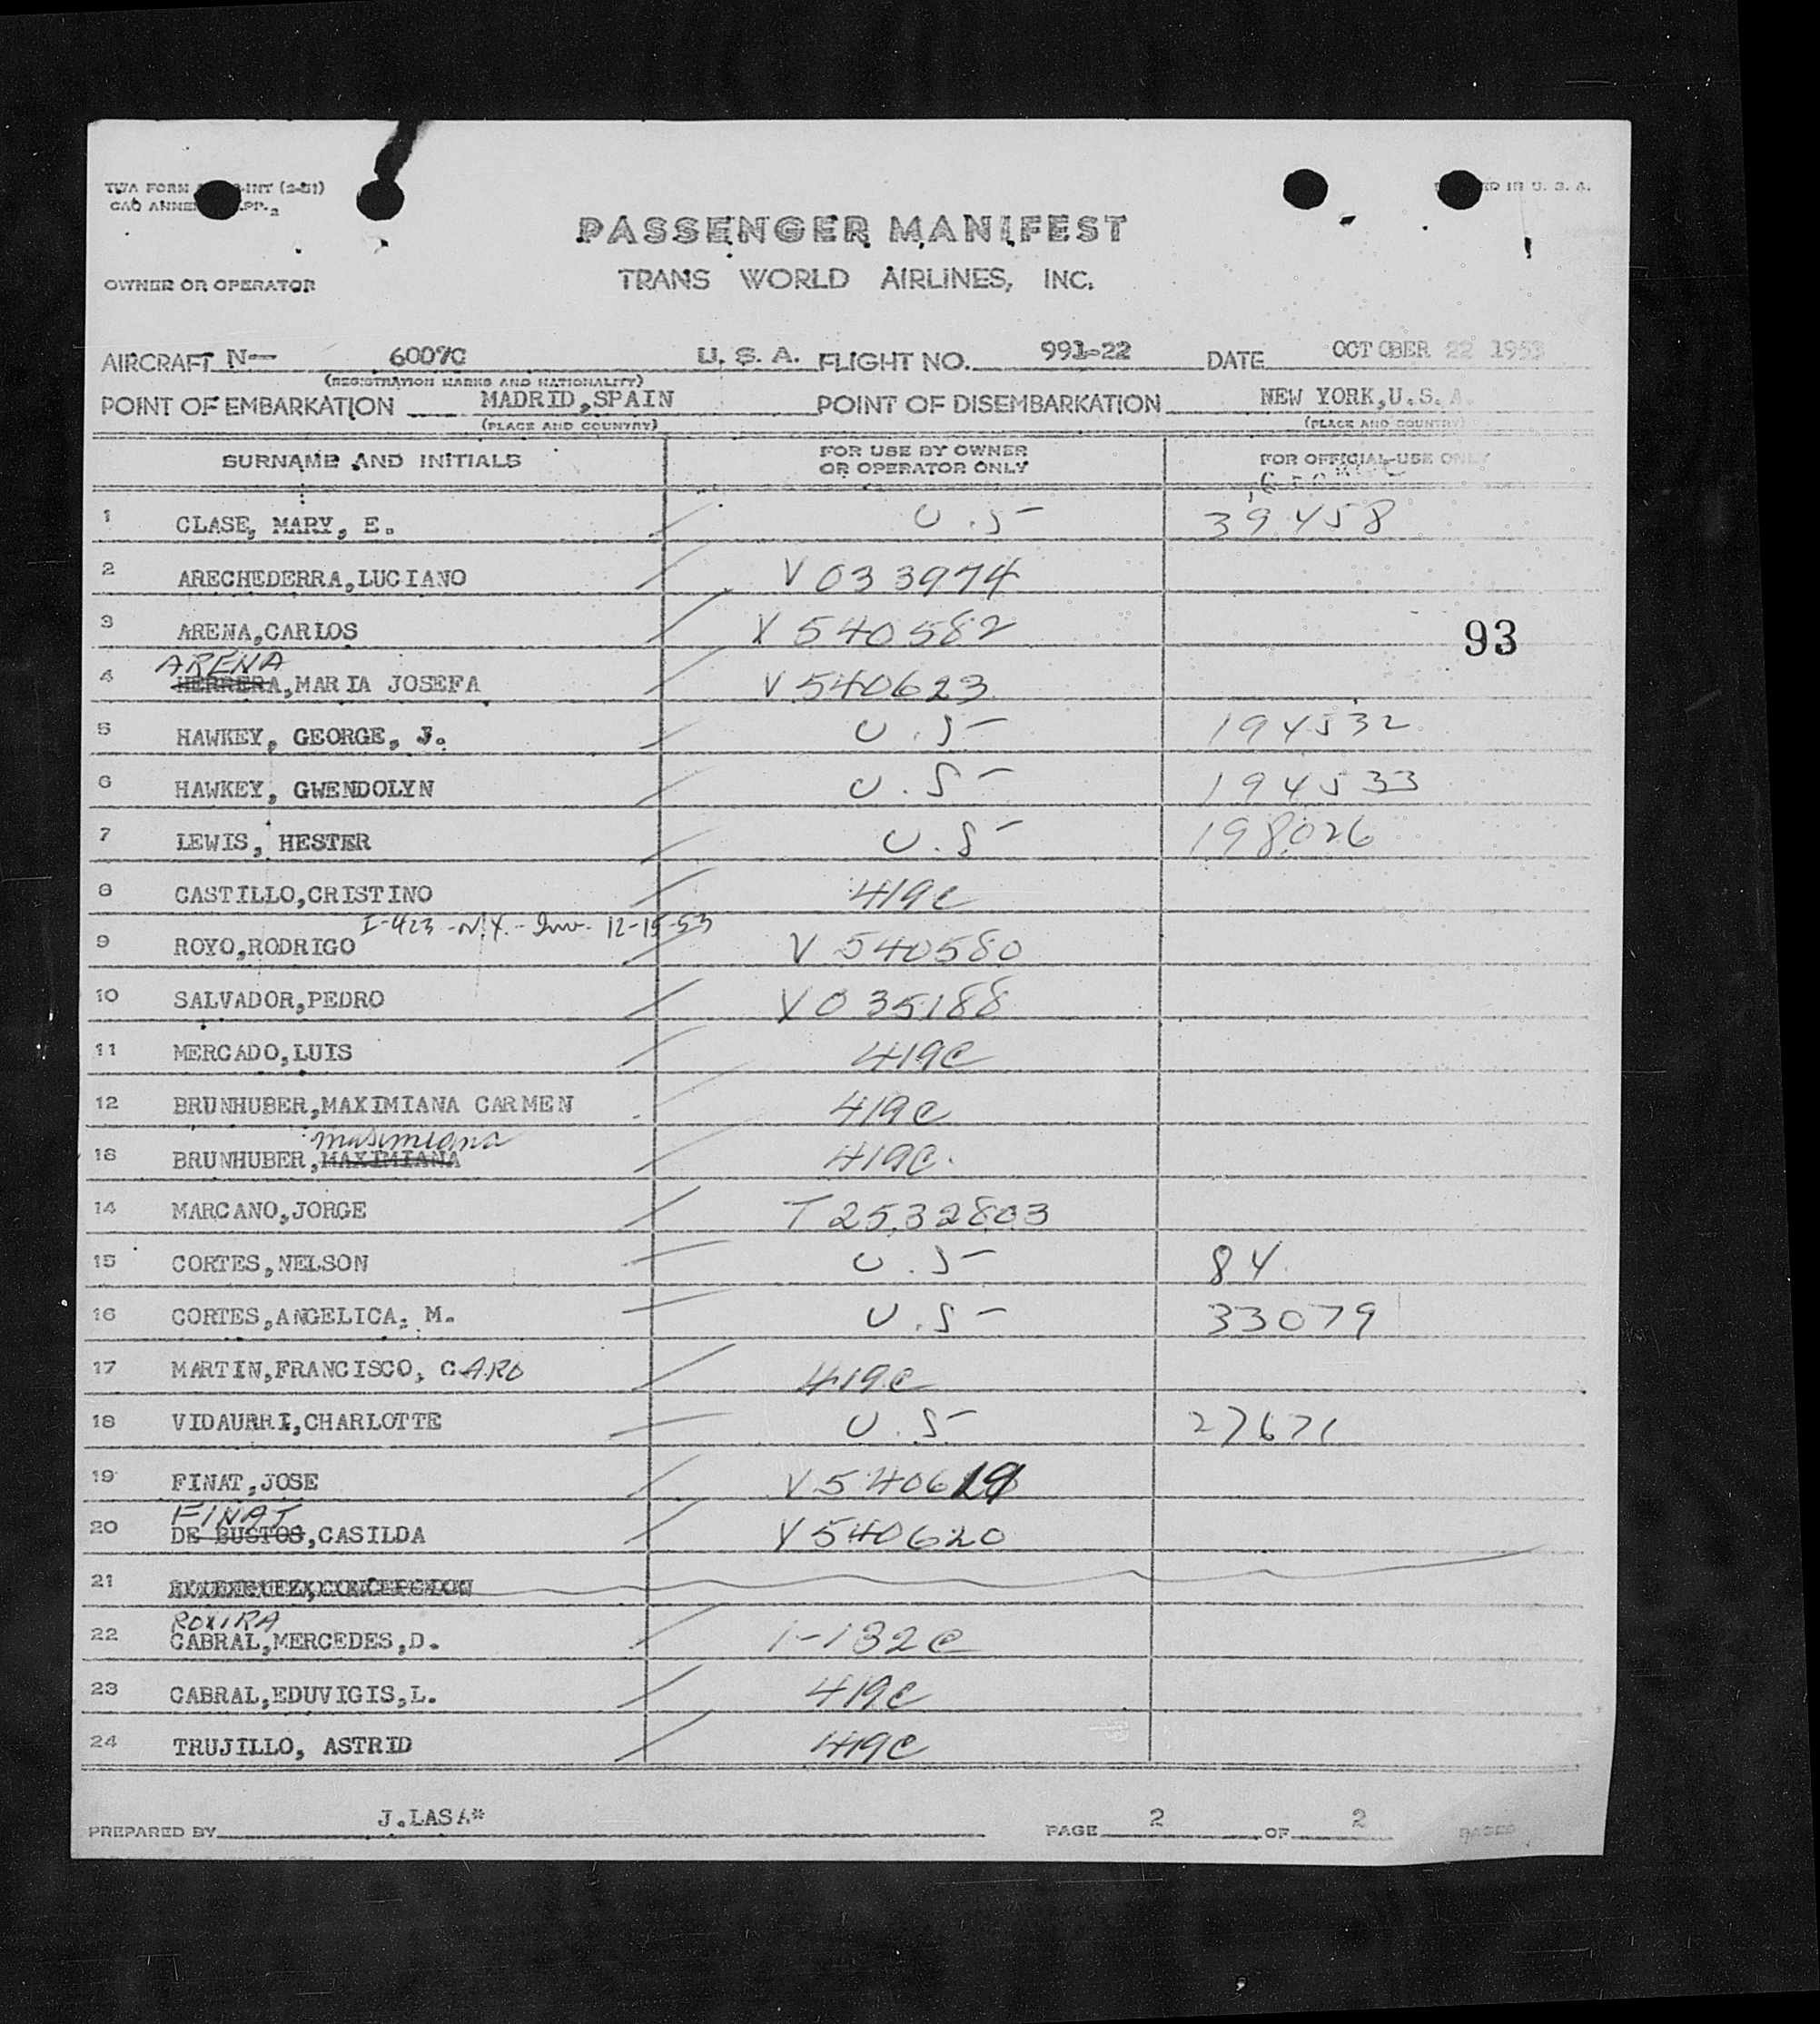 TWA FORM -INT (2-51)
PRINTED IN U. S. A.
PASSENGER MANIFEST
TRANS WORLD AIRLINES, INC.
OWNER OR OPERATOR
AIRCRAFT N— 6007C U. S. A. FLIGHT NO. 991-22 DATE OCTOBER 22 1953
(REGISTRATION MARKS AND NATIONALITY)
POINT OF EMBARKATION MADRID,SPAIN POINT OF DISEMBARKATION NEW YORK,U.S.A.
(PLACE AND COUNTRY) (PLACE AND COUNTRY)
SURNAME AND INITIALS FOR USE BY OWNER OR OPERATOR ONLY FOR OFFICIAL USE ONLY
1 CLASE, MARY, E. U.S- 39458
2 ARECHEDERRA,LUCIANO V 033974
3 ARENA,CARLOS V 540582
93
ARENA
4 HERRERA,MARIA JOSEFA V 540623
5 HAWKEY, GEORGE, J. U.S- 194532
6 HAWKEY, GWENDOLYN U.S- 194533
7 LEWIS, HESTER U.S- 198026
8 CASTILLO,CRISTINO 419C
I-423 -N.Y.- Inv. 12-15-53
9 ROYO,RODRIGO V 540580
10 SALVADOR,PEDRO V 035188
11 MERCADO,LUIS 419C
12 BRUNHUBER,MAXIMIANA CARMEN 419C
13 BRUNHUBER,MAXIMIANA 419C.
14 MARCANO,JORGE T 2532803
15 CORTES,NELSON U.S- 84
16 CORTES,ANGELICA, M. U.S- 33079
17 MARTIN,FRANCISCO, CARO 419C
18 VIDAURRI,CHARLOTTE U.S- 27671
19 FINAT,JOSE V 540619
FINAT
20 DE BUSTOS,CASILDA V 540620
21
ROVIRA
22 CABRAL,MERCEDES,D. 1-132C
23 CABRAL,EDUVIGIS,L. 419C
24 TRUJILLO, ASTRID 419C
PREPARED BY J.LASA* PAGE 2 OF 2 PAGES